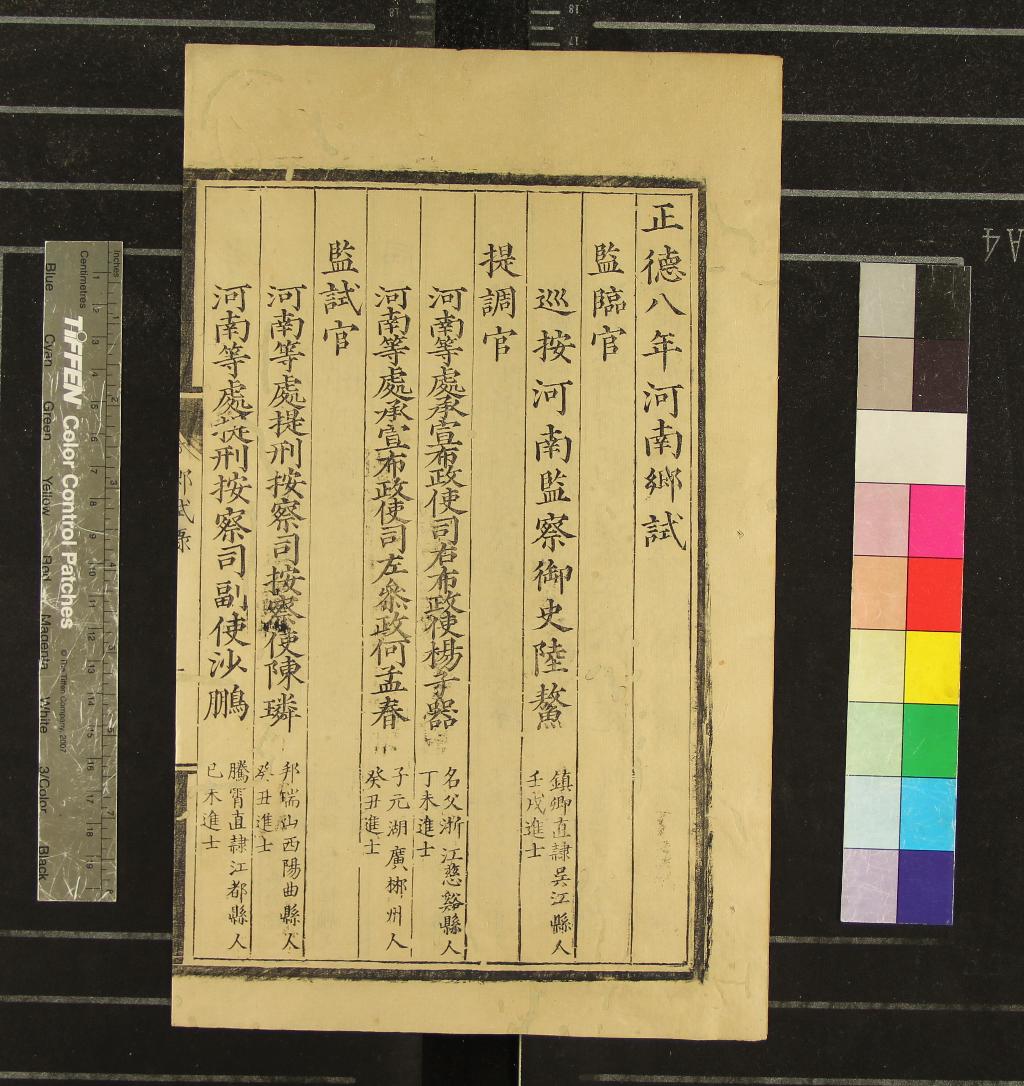 正德八年河南鄉試
監臨官
巡按河南監察御史陸鰲
鎮卿直隸吳江縣人
壬戌進士
提調官
河南等處承宣布政使司右布政使楊子器
名父浙江慈谿縣人
丁未進士
河南等處承宣布政使司左叅政何孟春
子元湖廣郴州人
癸丑進士
監試官
河南等處提刑按察司按察使陳璘
邦瑞山西陽曲縣人
癸丑進士
河南等處提刑按察司副使沙鵬
騰霄直隸江都縣人
己未進士
鄉試錄
一
Inches
Centimetres
TIFFEN Color Control Patches
© The Tiffen Company, 2007
Blue
Cyan
Green
Yellow
Red
Magenta
White
3/Color
Black
A4
18
17
18